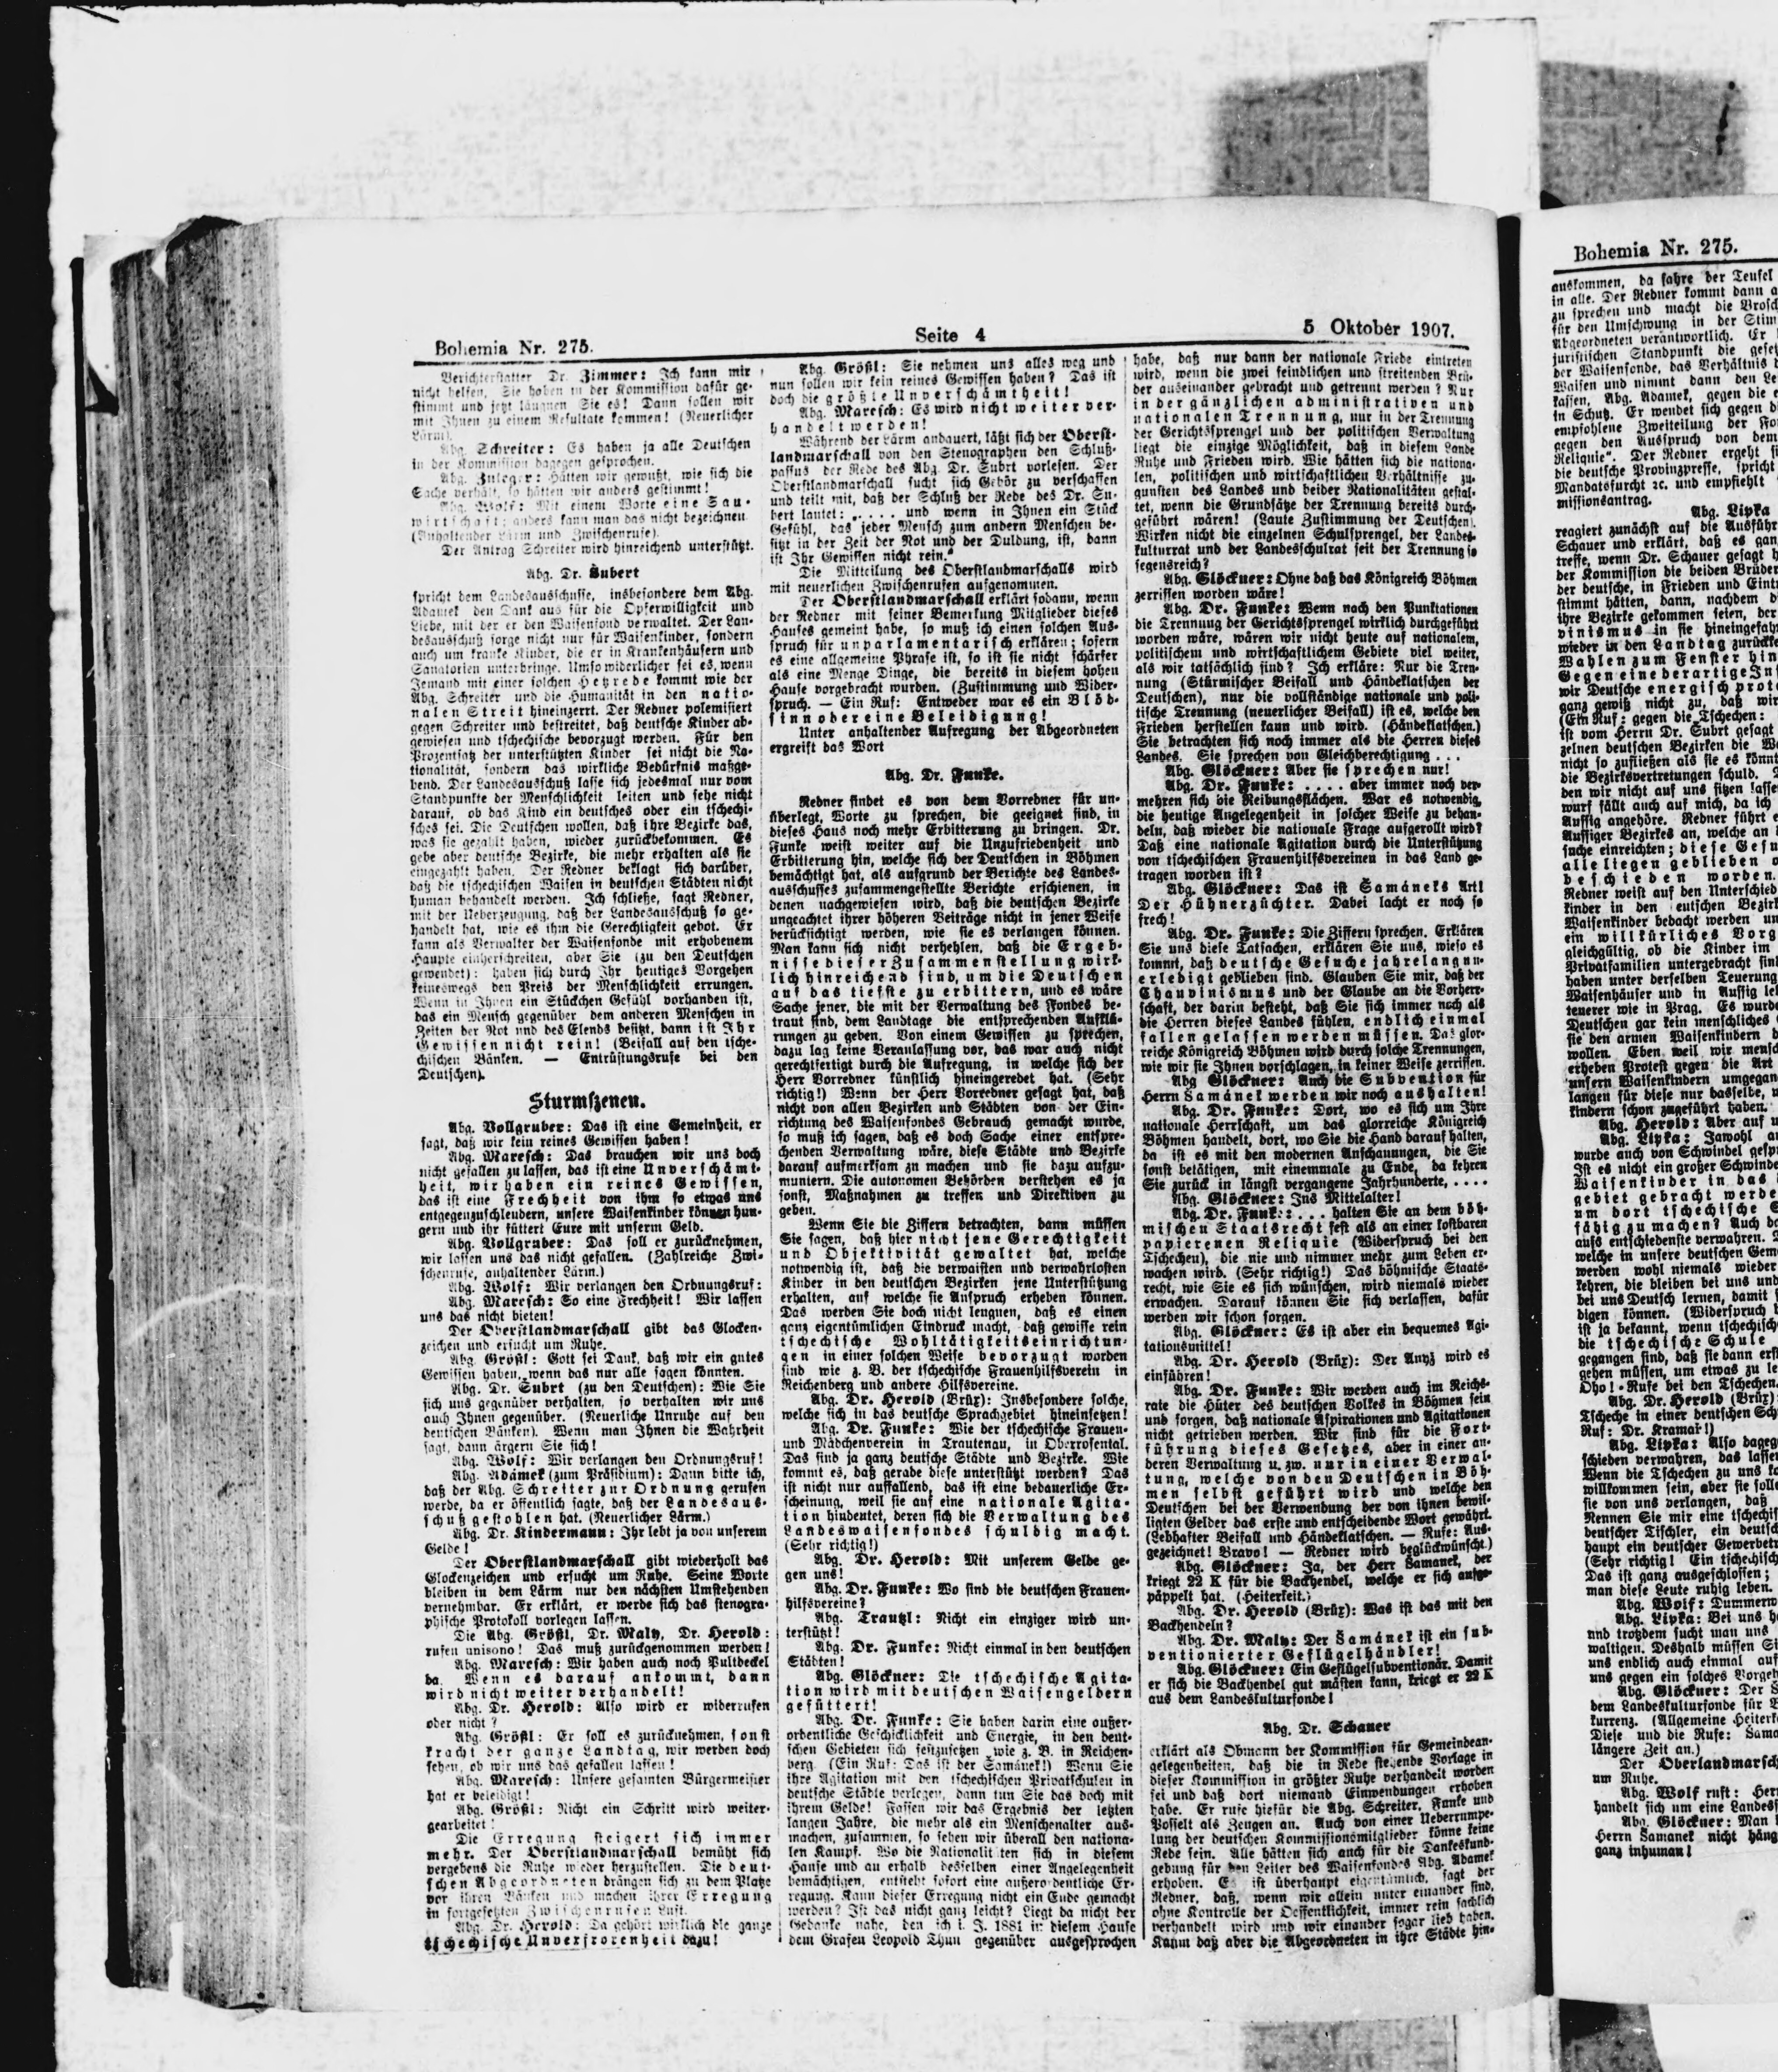 Bohemia Nr. 275.
Seite 4
5 Oktober 1907.
Berichterstatter Dr. Zimmer: Ich kann mir
nicht helfen, Sie haben in der Kommission dafür ge-
stimmt und jetzt läugnen Sie es! Dann sollen wir
mit Ihnen zu einem Resultate kommen! (Neuerlicher
Lärm).
Abg. Schreiter: Es haben ja alle Deutschen
in der Kommission dagegen gesprochen.
Abg. Zuleger: Hätten wir gewußt, wie sich die
Sache verhält, so hätten wir anders gestimmt!
Abg. Wolf: Mit einem Worte eine Sau-
wirtschaft; anders kann man das nicht bezeichnen
(Anhaltender Lärm und Zwischenrufe).
Der Antrag Schreiter wird hinreichend unterstützt.
Abg. Dr. Šubert
spricht dem Landesausschusse, insbesondere dem Abg.
Adamek den Dank aus für die Opferwilligkeit und
Liebe, mit der er den Waisenfond verwaltet. Der Lan-
desausschuß sorge nicht nur für Waisenkinder, sondern
auch um kranke Kinder, die er in Krankenhäusern und
Sanatorien unterbringe. Umso widerlicher sei es, wenn
Jemand mit einer solchen Hetzrede kommt wie der
Abg. Schreiter und die Humanität in den natio-
nalen Streit hineinzerrt. Der Redner polemisiert
gegen Schreiter und bestreitet, daß deutsche Kinder ab-
gewiesen und tschechische bevorzugt werden. Für den
Prozentsatz der unterstützten Kinder sei nicht die Na-
tionalität, sondern das wirkliche Bedürfnis maßge-
bend. Der Landesausschuß lasse sich jedesmal nur vom
Standpunkte der Menschlichkeit leiten und sehe nicht
darauf, ob das Kind ein deutsches oder ein tschechi-
sches sei. Die Deutschen wollen, daß ihre Bezirke das,
was sie gezahlt haben, wieder zurückbekommen. Es
gebe aber deutsche Bezirke, die mehr erhalten als sie
eingezahlt haben. Der Redner beklagt sich darüber,
daß die tschechischen Waisen in deutschen Städten nicht
human behandelt werden. Ich schließe, sagt Redner,
mit der Ueberzeugung, daß der Landesausschuß so ge-
handelt hat, wie es ihm die Gerechtigkeit gebot. Er
kann als Verwalter der Waisenfonde mit erhobenem
Haupte einherschreiten, aber Sie (zu den Deutschen
gewendet): haben sich durch Ihr heutiges Vorgehen
keineswegs den Preis der Menschlichkeit errungen.
Wenn in Ihnen ein Stückchen Gefühl vorhanden ist,
das ein Mensch gegenüber dem anderen Menschen in
Zeiten der Not und des Elends besitzt, dann ist Ihr
Gewissen nicht rein! (Beifall auf den tsche-
chischen Bänken. — Entrüstungsrufe bei den
Deutschen).
Sturmszenen.
Abg. Vollgruber: Das ist eine Gemeinheit, er
sagt, daß wir kein reines Gewissen haben!
Abg. Maresch: Das brauchen wir uns doch
nicht gefallen zu lassen, das ist eine Unverschämt-
heit, wir haben ein reines Gewissen,
das ist eine Frechheit von ihm so etwas uns
entgegenzuschleudern, unsere Waisenkinder können hun-
gern und ihr füttert Eure mit unserm Geld.
Abg. Vollgruber: Das soll er zurücknehmen,
wir lassen uns das nicht gefallen. (Zahlreiche Zwi-
schenrufe, anhaltender Lärm.)
Abg. Wolf: Wir verlangen den Ordnungsruf:
Abg. Maresch: So eine Frechheit! Wir lassen
uns das nicht bieten!
Der Oberstlandmarschall gibt das Glocken-
zeichen und ersucht um Ruhe.
Abg. Größl: Gott sei Dank, daß wir ein gutes
Gewissen haben, wenn das nur alle sagen könnten.
Abg. Dr. Subrt (zu den Deutschen): Wie Sie
sich uns gegenüber verhalten, so verhalten wir uns
auch Ihnen gegenüber. (Neuerliche Unruhe auf den
deutschen Bänken). Wenn man Ihnen die Wahrheit
sagt, dann ärgern Sie sich!
Abg. Wolf: Wir verlangen den Ordnungsruf!
Abg. Adámek (zum Präsidium): Dann bitte ich,
daß der Abg. Schreiter zur Ordnung gerufen
werde, da er öffentlich sagte, daß der Landesaus-
schuß gestohlen hat. (Neuerlicher Lärm.)
Abg. Dr. Kindermann: Ihr lebt ja von unserem
Gelde!
Der Oberstlandmarschall gibt wiederholt das
Glockenzeichen und ersucht um Ruhe. Seine Worte
bleiben in dem Lärm nur den nächsten Umstehenden
vernehmbar. Er erklärt, er werde sich das stenogra-
phische Protokoll vorlegen lassen.
Die Abg. Größl, Dr. Maly, Dr. Herold:
rufen unisono! Das muß zurückgenommen werden!
Abg. Maresch: Wir haben auch noch Pultdeckel
da. Wenn es darauf ankommt, dann
wird nicht weiter verhandelt!
Abg. Dr. Herold: Also wird er widerrufen
oder nicht?
Abg. Größl: Er soll es zurücknehmen, sonst
kracht der ganze Landtag, wir werden doch
sehen, ob wir uns das gefallen lassen!
Abg. Maresch: Unsere gesamten Bürgermeister
hat er beleidigt!
Abg. Größl: Nicht ein Schritt wird weiter-
gearbeitet!
Die Erregung steigert sich immer
mehr. Der Oberstlandmarschall bemüht sich
vergebens die Ruhe wieder herzustellen. Die deut-
schen Abgeordneten drängen sich zu dem Platze
vor ihren Bänken und machen ihrer Erregung
in fortgesetzten Zwischenrufen Luft.
Abg. Dr. Herold: Da gehört wirklich die ganze
tschechische Unverfrorenheit dazu!
Abg. Größl: Sie nehmen uns alles weg und
nun sollen wir kein reines Gewissen haben? Das ist
doch die größte Unverschämtheit!
Abg. Maresch: Es wird nicht weiter ver-
handelt werden!
Während der Lärm andauert, läßt sich der Oberst-
landmarschall von den Stenographen den Schluß-
passus der Rede des Abg. Dr. Subrt vorlesen. Der
Oberstlandmarschall sucht sich Gehör zu verschaffen
und teilt mit, daß der Schluß der Rede des Dr. Su-
bert lautet: „.... und wenn in Ihnen ein Stück
Gefühl, das jeder Mensch zum andern Menschen be-
sitzt in der Zeit der Not und der Duldung, ist, dann
ist Ihr Gewissen nicht rein.“
Die Mitteilung des Oberstlandmarschalls wird
mit neuerlichen Zwischenrufen aufgenommen.
Der Oberstlandmarschall erklärt sodann, wenn
der Redner mit seiner Bemerkung Mitglieder dieses
Hauses gemeint habe, so muß ich einen solchen Aus-
spruch für unparlamentarisch erklären; sofern
es eine allgemeine Phrase ist, so ist sie nicht schärfer
als eine Menge Dinge, die bereits in diesem hohen
Hause vorgebracht wurden. (Zustimmung und Wider-
spruch. — Ein Ruf: Entweder war es ein Blöd-
sinn oder eine Beleidigung!
Unter anhaltender Aufregung der Abgeordneten
ergreift das Wort
Abg. Dr. Funke.
Redner findet es von dem Vorredner für un-
überlegt, Worte zu sprechen, die geeignet sind, in
dieses Haus noch mehr Erbitterung zu bringen. Dr.
Funke weist weiter auf die Unzufriedenheit und
Erbitterung hin, welche sich der Deutschen in Böhmen
bemächtigt hat, als aufgrund der Berichte des Landes-
ausschusses zusammengestellte Berichte erschienen, in
denen nachgewiesen wird, daß die deutschen Bezirke
ungeachtet ihrer höheren Beiträge nicht in jener Weise
berücksichtigt werden, wie sie es verlangen können.
Man kann sich nicht verhehlen, daß die Ergeb-
nisse dieser Zusammenstellung wirk-
lich hinreichend sind, um die Deutschen
auf das tiefste zu erbittern, und es wäre
Sache jener, die mit der Verwaltung des Fondes be-
traut sind, dem Landtage die entsprechenden Aufklä-
rungen zu geben. Von einem Gewissen zu sprechen,
dazu lag keine Veranlassung vor, das war auch nicht
gerechtfertigt durch die Aufregung, in welche sich der
Herr Vorredner künstlich hineingeredet hat. (Sehr
richtig!) Wenn der Herr Vorredner gesagt hat, daß
nicht von allen Bezirken und Städten von der Ein-
richtung des Waisenfondes Gebrauch gemacht wurde,
so muß ich sagen, daß es doch Sache einer entspre-
chenden Verwaltung wäre, diese Städte und Bezirke
darauf aufmerksam zu machen und sie dazu aufzu-
muntern. Die autonomen Behörden verstehen es ja
sonst, Maßnahmen zu treffen und Direktiven zu
geben.
Wenn Sie die Ziffern betrachten, dann müssen
Sie sagen, daß hier nicht jene Gerechtigkeit
und Objektivität gewaltet hat, welche
notwendig ist, daß die verwaisten und verwahrlosten
Kinder in den deutschen Bezirken jene Unterstützung
erhalten, auf welche sie Anspruch erheben können.
Das werden Sie doch nicht leugnen, daß es einen
ganz eigentümlichen Eindruck macht, daß gewisse rein
tschechische Wohltätigkeitseinrichtun-
gen in einer solchen Weise bevorzugt worden
sind wie z. B. der tschechische Frauenhilfsverein in
Reichenberg und andere Hilfsvereine.
Abg. Dr. Herold (Brüx): Insbesondere solche,
welche sich in das deutsche Sprachgebiet hineinsetzen!
Abg. Dr. Funke: Wie der tschechische Frauen-
und Mädchenverein in Trautenau, in Oberrosental.
Das sind ja ganz deutsche Städte und Bezirke. Wie
kommt es, daß gerade diese unterstützt werden? Das
ist nicht nur auffallend, das ist eine bedauerliche Er-
scheinung, weil sie auf eine nationale Agita-
tion hindeutet, deren sich die Verwaltung des
Landeswaisenfondes schuldig macht.
(Sehr richtig!)
Abg. Dr. Herold: Mit unserem Gelde ge-
gen uns!
Abg. Dr. Funke: Wo sind die deutschen Frauen-
hilfsvereine?
Abg. Trautzl: Nicht ein einziger wird un-
terstützt!
Abg. Dr. Funke: Nicht einmal in den deutschen
Städten!
Abg. Glöckner: Die tschechische Agita-
tion wird mit deutschen Waisengeldern
gefüttert!
Abg. Dr. Funke: Sie haben darin eine außer-
ordentliche Geschicklichkeit und Energie, in den deut-
schen Gebieten sich festzusetzen, wie z. B. in Reichen-
berg. (Ein Ruf: Das ist der Samánek!) Wenn Sie
ihre Agitation mit den tschechischen Privatschulen in
deutsche Städte verlegen, dann tun Sie das doch mit
ihrem Gelde! Fassen wir das Ergebnis der letzten
langen Jahre, die mehr als ein Menschenalter aus-
machen, zusammen, so sehen wir überall den nationa-
len Kampf. Wo die Nationalitäten sich in diesem
Hause und außerhalb desselben einer Angelegenheit
bemächtigen, entsteht sofort eine außerordentliche Er-
regung. Kann dieser Erregung nicht ein Ende gemacht
werden? Ist das nicht ganz leicht? Liegt da nicht der
Gedanke nahe, den ich i. J. 1881 in diesem Hause
dem Grafen Leopold Thun gegenüber ausgesprochen
habe, daß nur dann der nationale Friede eintreten
wird, wenn die zwei feindlichen und streitenden Brü-
der auseinander gebracht und getrennt werden? Nur
in der gänzlichen administrativen und
nationalen Trennung, nur in der Trennung
der Gerichtssprengel und der politischen Verwaltung
liegt die einzige Möglichkeit, daß in diesem Lande
Ruhe und Frieden wird. Wie hätten sich die nationa-
len, politischen und wirtschaftlichen Verhältnisse zu-
gunsten des Landes und beider Nationalitäten gestal-
tet, wenn die Grundsätze der Trennung bereits durch-
geführt wären! (Laute Zustimmung der Deutschen).
Wirken nicht die einzelnen Schulsprengel, der Landes-
kulturrat und der Landesschulrat seit der Trennung so
segensreich?
Abg. Glöckner: Ohne daß das Königreich Böhmen
zerrissen worden wäre!
Abg. Dr. Funke: Wenn nach den Punktationen
die Trennung der Gerichtssprengel wirklich durchgeführt
worden wäre, wären wir nicht heute auf nationalem,
politischem und wirtschaftlichem Gebiete viel weiter,
als wir tatsächlich sind? Ich erkläre: Nur die Tren-
nung (Stürmischer Beifall und Händeklatschen der
Deutschen), nur die vollständige nationale und poli-
tische Trennung (neuerlicher Beifall) ist es, welche den
Frieden herstellen kann und wird. (Händeklatschen.)
Sie betrachten sich noch immer als die Herren dieses
Landes. Sie sprechen von Gleichberechtigung . . .
Abg. Glöckner: Aber sie sprechen nur!
Abg. Dr. Funke: . . . . aber immer noch ver-
mehren sich die Reibungsflächen. War es notwendig,
die heutige Angelegenheit in solcher Weise zu behan-
deln, daß wieder die nationale Frage aufgerollt wird?
Daß eine nationale Agitation durch die Unterstützung
von tschechischen Frauenhilfsvereinen in das Land ge-
tragen worden ist?
Abg. Glöckner: Das ist Šamáneks Art!
Der Hühnerzüchter. Dabei lacht er noch so
frech!
Abg. Dr. Funke: Die Ziffern sprechen. Erklären
Sie uns diese Tatsachen, erklären Sie uns, wieso es
kommt, daß deutsche Gesuche jahrelang un-
erledigt geblieben sind. Glauben Sie mir, daß der
Chauvinismus und der Glaube an die Vorherr-
schaft, der darin besteht, daß Sie sich immer noch als
die Herren dieses Landes fühlen, endlich einmal
fallen gelassen werden müssen. Das glor-
reiche Königreich Böhmen wird durch solche Trennungen,
wie wir sie Ihnen vorschlagen, in keiner Weise zerrissen.
Abg Glöckner: Auch die Subvention für
Herrn Samánek werden wir noch aushalten!
Abg. Dr. Funke: Dort, wo es sich um Ihre
nationale Herrschaft, um das glorreiche Königreich
Böhmen handelt, dort, wo Sie die Hand darauf halten,
da ist es mit den modernen Anschauungen, die Sie
sonst betätigen, mit einemmale zu Ende, da kehren
Sie zurück in längst vergangene Jahrhunderte, . . . .
Abg. Glöckner: Ins Mittelalter!
Abg. Dr. Funke: . . . halten Sie an dem böh-
mischen Staatsrecht fest als an einer kostbaren
papierenen Reliquie (Widerspruch bei den
Tschechen), die nie und nimmer mehr zum Leben er-
wachen wird. (Sehr richtig!) Das böhmische Staats-
recht, wie Sie es sich wünschen, wird niemals wieder
erwachen. Darauf können Sie sich verlassen, dafür
werden wir schon sorgen.
Abg. Glöckner: Es ist aber ein bequemes Agi-
tationsmittel!
Abg. Dr. Herold (Brüx): Der Anyž wird es
einführen!
Abg. Dr. Funke: Wir werden auch im Reichs-
rate die Hüter des deutschen Volkes in Böhmen sein
und sorgen, daß nationale Aspirationen und Agitationen
nicht getrieben werden. Wir sind für die Fort-
führung dieses Gesetzes, aber in einer an-
deren Verwaltung u. zw. nur in einer Verwal-
tung, welche von den Deutschen in Böh-
men selbst geführt wird und welche den
Deutschen bei der Verwendung der von ihnen bewil-
ligten Gelder das erste und entscheidende Wort gewährt.
(Lebhafter Beifall und Händeklatschen. — Rufe: Aus-
gezeichnet! Bravo! — Redner wird beglückwünscht.)
Abg. Glöckner: Ja, der Herr Samanek, der
kriegt 22 K für die Backhendel, welche er sich aufge-
päppelt hat. (Heiterkeit.)
Abg. Dr. Herold (Brüx): Was ist das mit den
Backhendeln?
Abg. Dr. Maly: Der Šamánek ist ein sub-
ventionierter Geflügelhändler!
Abg. Glöckner: Ein Geflügelsubventionär. Damit
er sich die Backhendel gut mästen kann, kriegt er 22 K
aus dem Landeskulturfonde!
Abg. Dr. Schauer
erklärt als Obmann der Kommission für Gemeindean-
gelegenheiten, daß die in Rede stehende Vorlage in
dieser Kommission in größter Ruhe verhandelt worden
sei und daß dort niemand Einwendungen erhoben
habe. Er rufe hiefür die Abg. Schreiter, Funke und
Posselt als Zeugen an. Auch von einer Ueberrumpe-
lung der deutschen Kommissionsmitglieder könne keine
Rede sein. Alle hätten sich auch für die Dankeskund-
gebung für den Leiter des Waisenfondes Abg. Adamek
erhoben. Es ist überhaupt eigentümlich, sagt der
Redner, daß, wenn wir allein unter einander sind,
ohne Kontrolle der Oeffentlichkeit, immer rein sachlich
verhandelt wird und wir einander sogar lieb haben.
Kaum daß aber die Abgeordneten in ihre Städte hin-
Bohemia Nr. 275.
auskommen, da fahre der Teufel
in alle. Der Redner kommt dann
zu sprechen und macht die
für den Umschwung in der
Abgeordneten verantwortlich. Er
juristischen Standpunkt die
der Waisenfonde, das Verhältnis
Waisen und nimmt dann den
kassen, Abg. Adamek, gegen die
in Schutz. Er wendet sich gegen
empfohlene Zweiteilung der
gegen den Ausspruch von dem
Reliquie“. Der Redner ergeht
die deutsche Provinzpresse, spricht
Mandatsfurcht 2c. und empfiehlt
missionsantrag.
Abg. Lipka
reagiert zunächst auf die
Schauer und erklärt, daß es
treffe, wenn Dr. Schauer gesagt
der Kommission die beiden Brüder
der deutsche, in Frieden und
stimmt hätten, dann, nachdem
ihre Bezirke gekommen seien, der
vinismus in sie
wieder in den Landtag
Wahlen zum Fenster
Gegen eine derartige
wir Deutsche energisch
ganz gewiß nicht zu, daß wir
(Ein Ruf: gegen die Tschechen:
ist vom Herrn Dr. Subrt gesagt
zelnen deutschen Bezirken die
nicht so zufließen als sie es
die Bezirksvertretungen schuld.
den wir nicht auf uns sitzen
wurf fällt auch auf mich, da ich
Aussig angehöre. Redner führt
Aussiger Bezirkes an, welche an
suche einreichten; diese
alle liegen geblieben
beschieden worden.
Redner weist auf den Unterschied
kinder in den
Waisenkinder bedacht werden
ein willkürliches
gleichgültig, ob die Kinder im
Privatfamilien untergebracht
haben unter derselben Teuerung
Waisenhäuser und in Aussig
teuerer wie in Prag. Es
Deutschen gar kein menschliches
sie den armen Waisenkindern
wollen. Eben weil wir
erheben Protest gegen die Art
unsern Waisenkindern
langen für diese nur dasselbe,
kindern schon zugeführt haben.
Abg. Herold: Aber auf
Abg. Lipka: Jawohl
wurde auch von Schwindel
Ist es nicht ein großer
Waisenkinder in das
gebiet gebracht
um dort tschechische
fähig zu machen? Auch
aufs entschiedenste verwahren.
welche in unsere deutschen
werden wohl niemals wieder
kehren, die bleiben bei uns und
bei uns Deutsch lernen, damit
digen können. (Widerspruch
ist ja bekannt, wenn
die tschechische Schule
gegangen sind, daß sie dann
gehen müssen, um etwas zu
Oho!-Rufe bei den Tschechen.
Abg. Dr. Herold (Brüx):
Tscheche in einer deutschen
Ruf: Dr. Kramař!)
Abg. Lipka: Also
schieden verwahren, das
Wenn die Tschechen zu uns
willkommen sein, aber sie
sie von uns verlangen, daß
Nennen Sie mir eine
deutscher Tischler, ein
haupt ein deutscher
(Sehr richtig! Ein
Das ist ganz ausgeschlossen;
man diese Leute ruhig leben.
Abg. Wolf:
Abg. Lipka: Bei uns
und trotzdem sucht man uns
waltigen. Deshalb müssen
uns endlich auch einmal
uns gegen ein solches
Abg. Glöckner: Der
dem Landeskulturfonde für
kurrenz. (Allgemeine
Diese und die Rufe:
längere Zeit an.)
Der
um Ruhe.
Abg. Wolf ruft:
handelt sich um eine
Abg. Glöckner: Man
Herrn Samanek nicht
ganz inhuman!